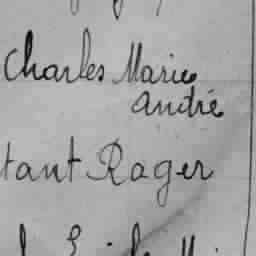 Charles Marie
André
tant Rager